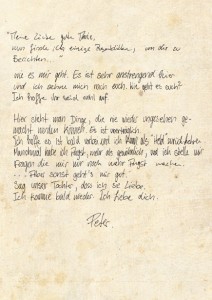 "Meine liebe gute Thea,
nun finde ich einige Augenblicke, um dir zu
berichten...
wie es mir geht. Es ist sehr anstrengend hier
und ich sehne mich nach euch. Wie geht es euch?
Ich hoffe ihr seid wohl auf.
Hier sieht man Dinge, die nie wieder ungesehen ge-
macht werden können. Es ist unerträglich.
Ich hoffe es ist bald vorbei und ich kann als "Held" zurückkehren.
Manchmal habe ich Angst, mehr als gewöhnlich, und ich stelle mir
Fragen die mir nur noch mehr Angst machen.
... Aber sonst geht's mir gut.
Sag unser Tochter, dass ich sie Liebe.
Ich komme bald wieder. Ich liebe dich.
Peter.